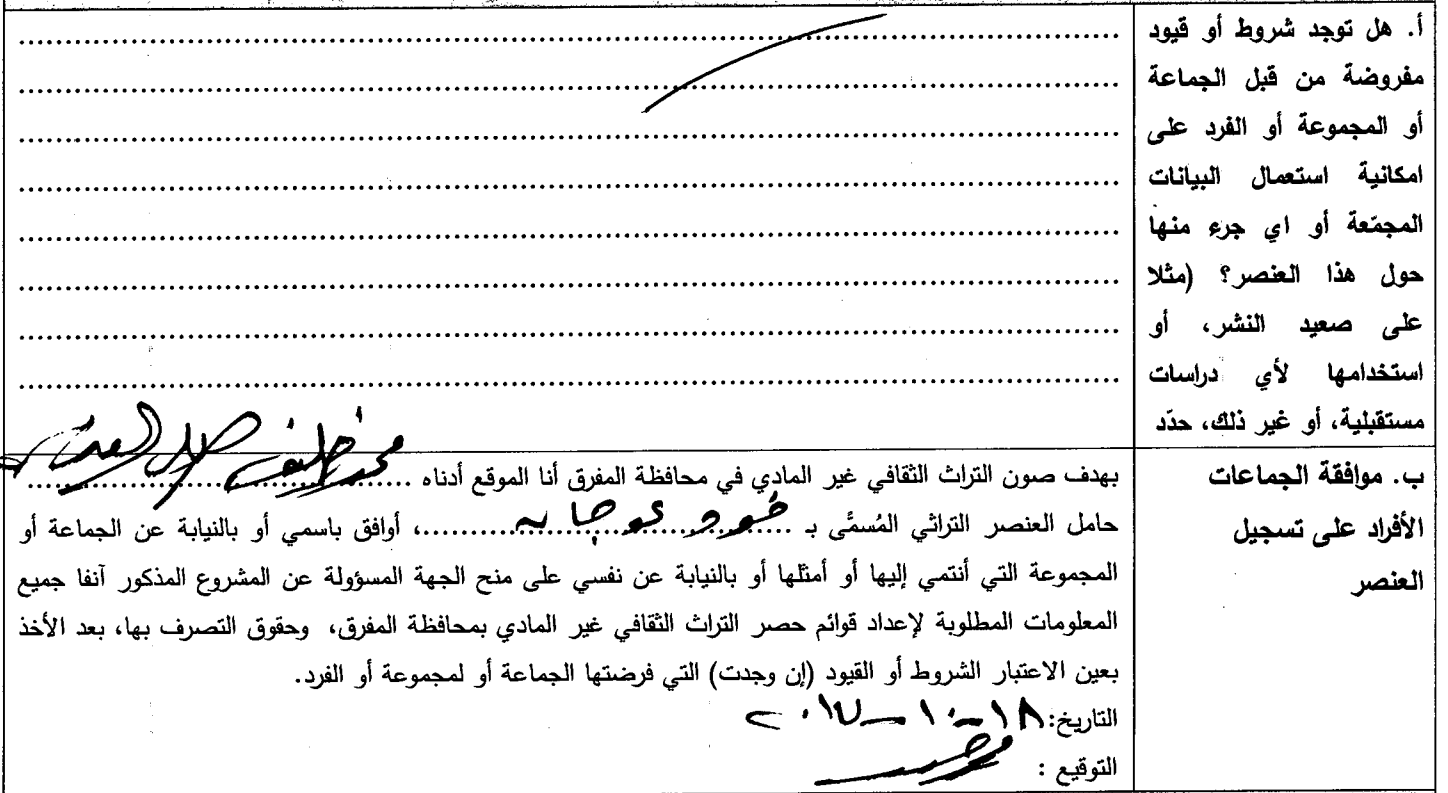 أ. هل توجد شروط أو قيود
مفروضة من قبل الجماعة
أو المجموعة أو الفرد على
امكانية استعمال البيانات
المجمّعة أو اي جرء منها
حول هذا العنصر؟ (مثلا
على صعيد النشر، أو
استخدامها لأي دراسات
مستقبلية، أو غير ذلك، حدّد
ب. موافقة الجماعات
الأفراد على تسجيل
العنصر
بهدف صون التراث الثقافي غير المادي في محافظة المفرق أنا الموقع أدناه محمد
حامل العنصر التراثي المُسمَّى بـ ........، أوافق باسمي أو بالنيابة عن الجماعة أو
المجموعة التي أنتمي إليها أو أمثلها أو بالنيابة عن نفسي على منح الجهة المسؤولة عن المشروع المذكور آنفا جميع
المعلومات المطلوبة لإعداد قوائم حصر التراث الثقافي غير المادي بمحافظة المفرق، وحقوق التصرف بها، بعد الأخذ
بعين الاعتبار الشروط أو القيود (إن وجدت) التي فرضتها الجماعة أو لمجموعة أو الفرد.
التاريخ: ١٨-١٠-٢٠١٧
التوقيع :